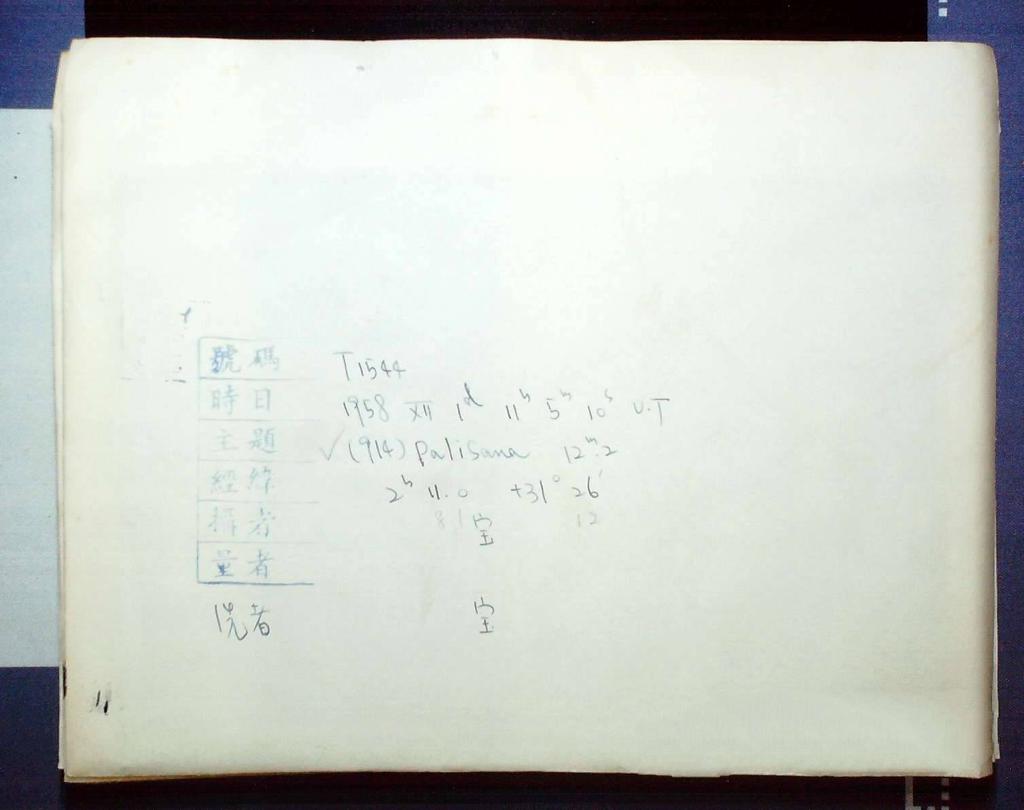 號碼 T1544
時日 1958 XII 1d 11h 5m 10s U.T
主題 ✓(914) Palisana 12m.2
經緯 2h 11.0 +31° 26'
攝者 81 宝 12
量者
洗者 宝